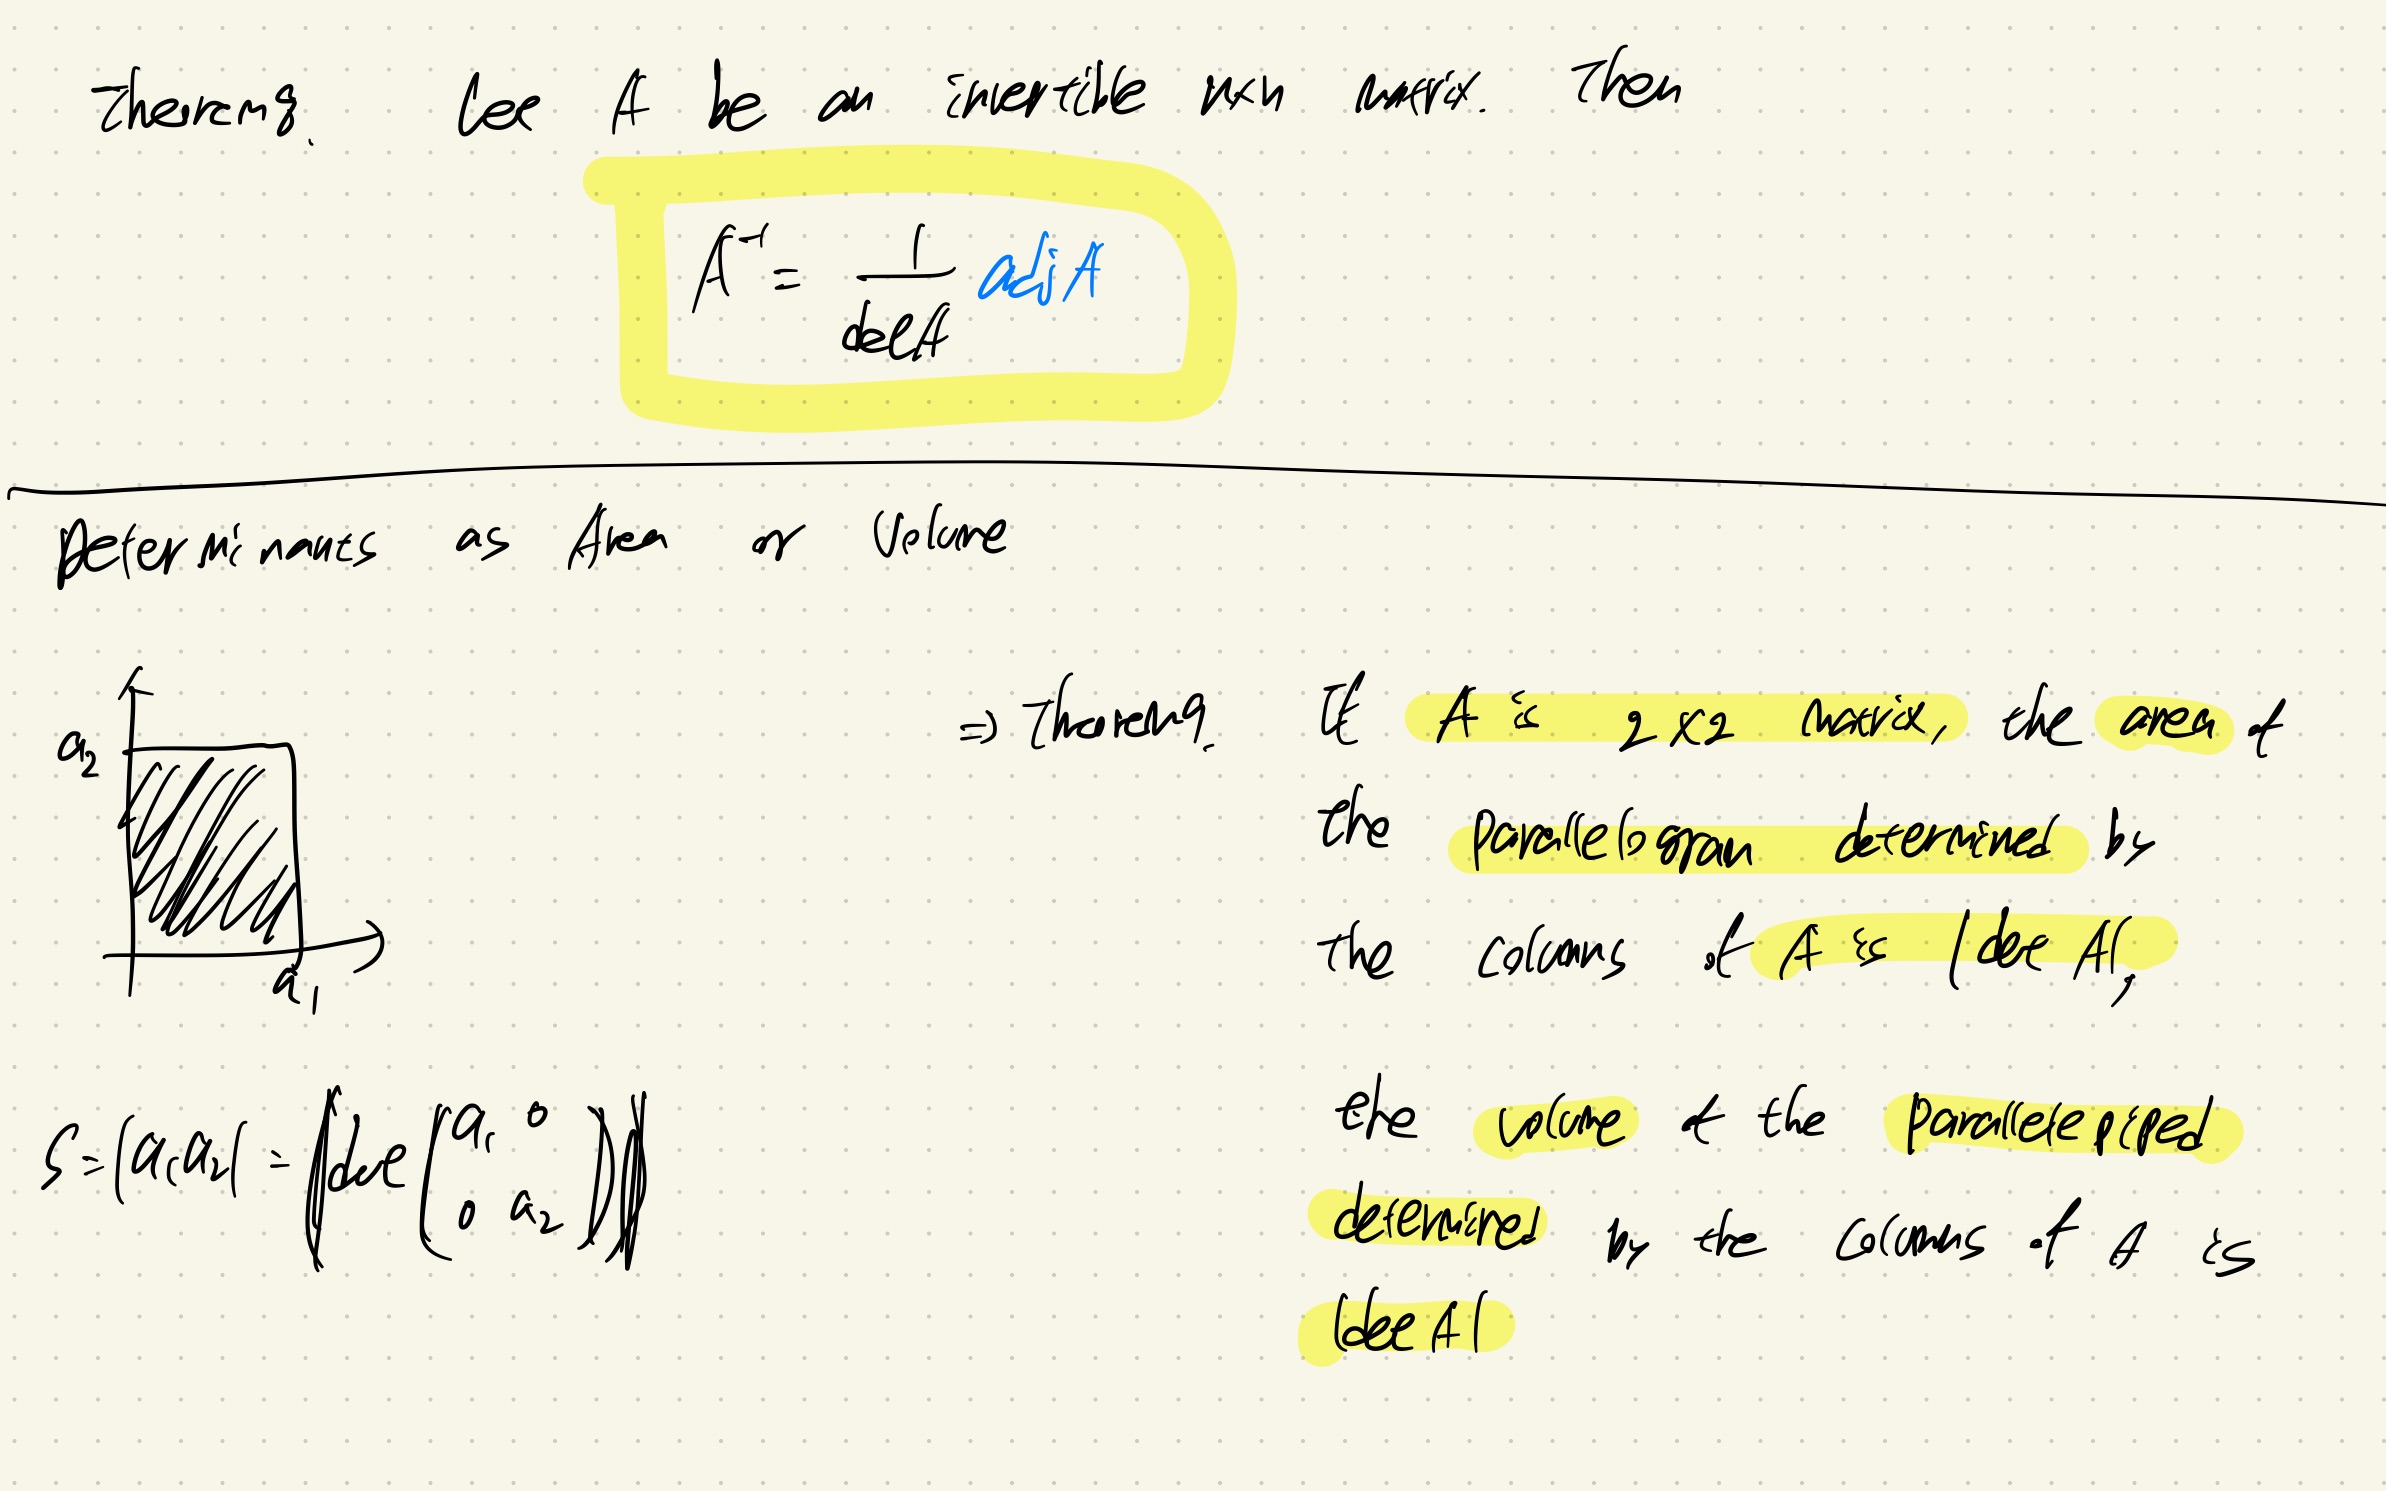 Theorem8. Let A be an invertible n×n matrix. Then
A⁻¹ = 1/det A adj A
Determinants as Area or Volume
a₂
a₁
S = |a₁a₂| = |det (a₁ 0
0 a₂)|
⇒ Theorem9. If A is 2×2 matrix, the area of
the parallelogram determined by
the columns of A is |det A|,
the volume of the parallelepiped
determined by the columns of A is
|det A|